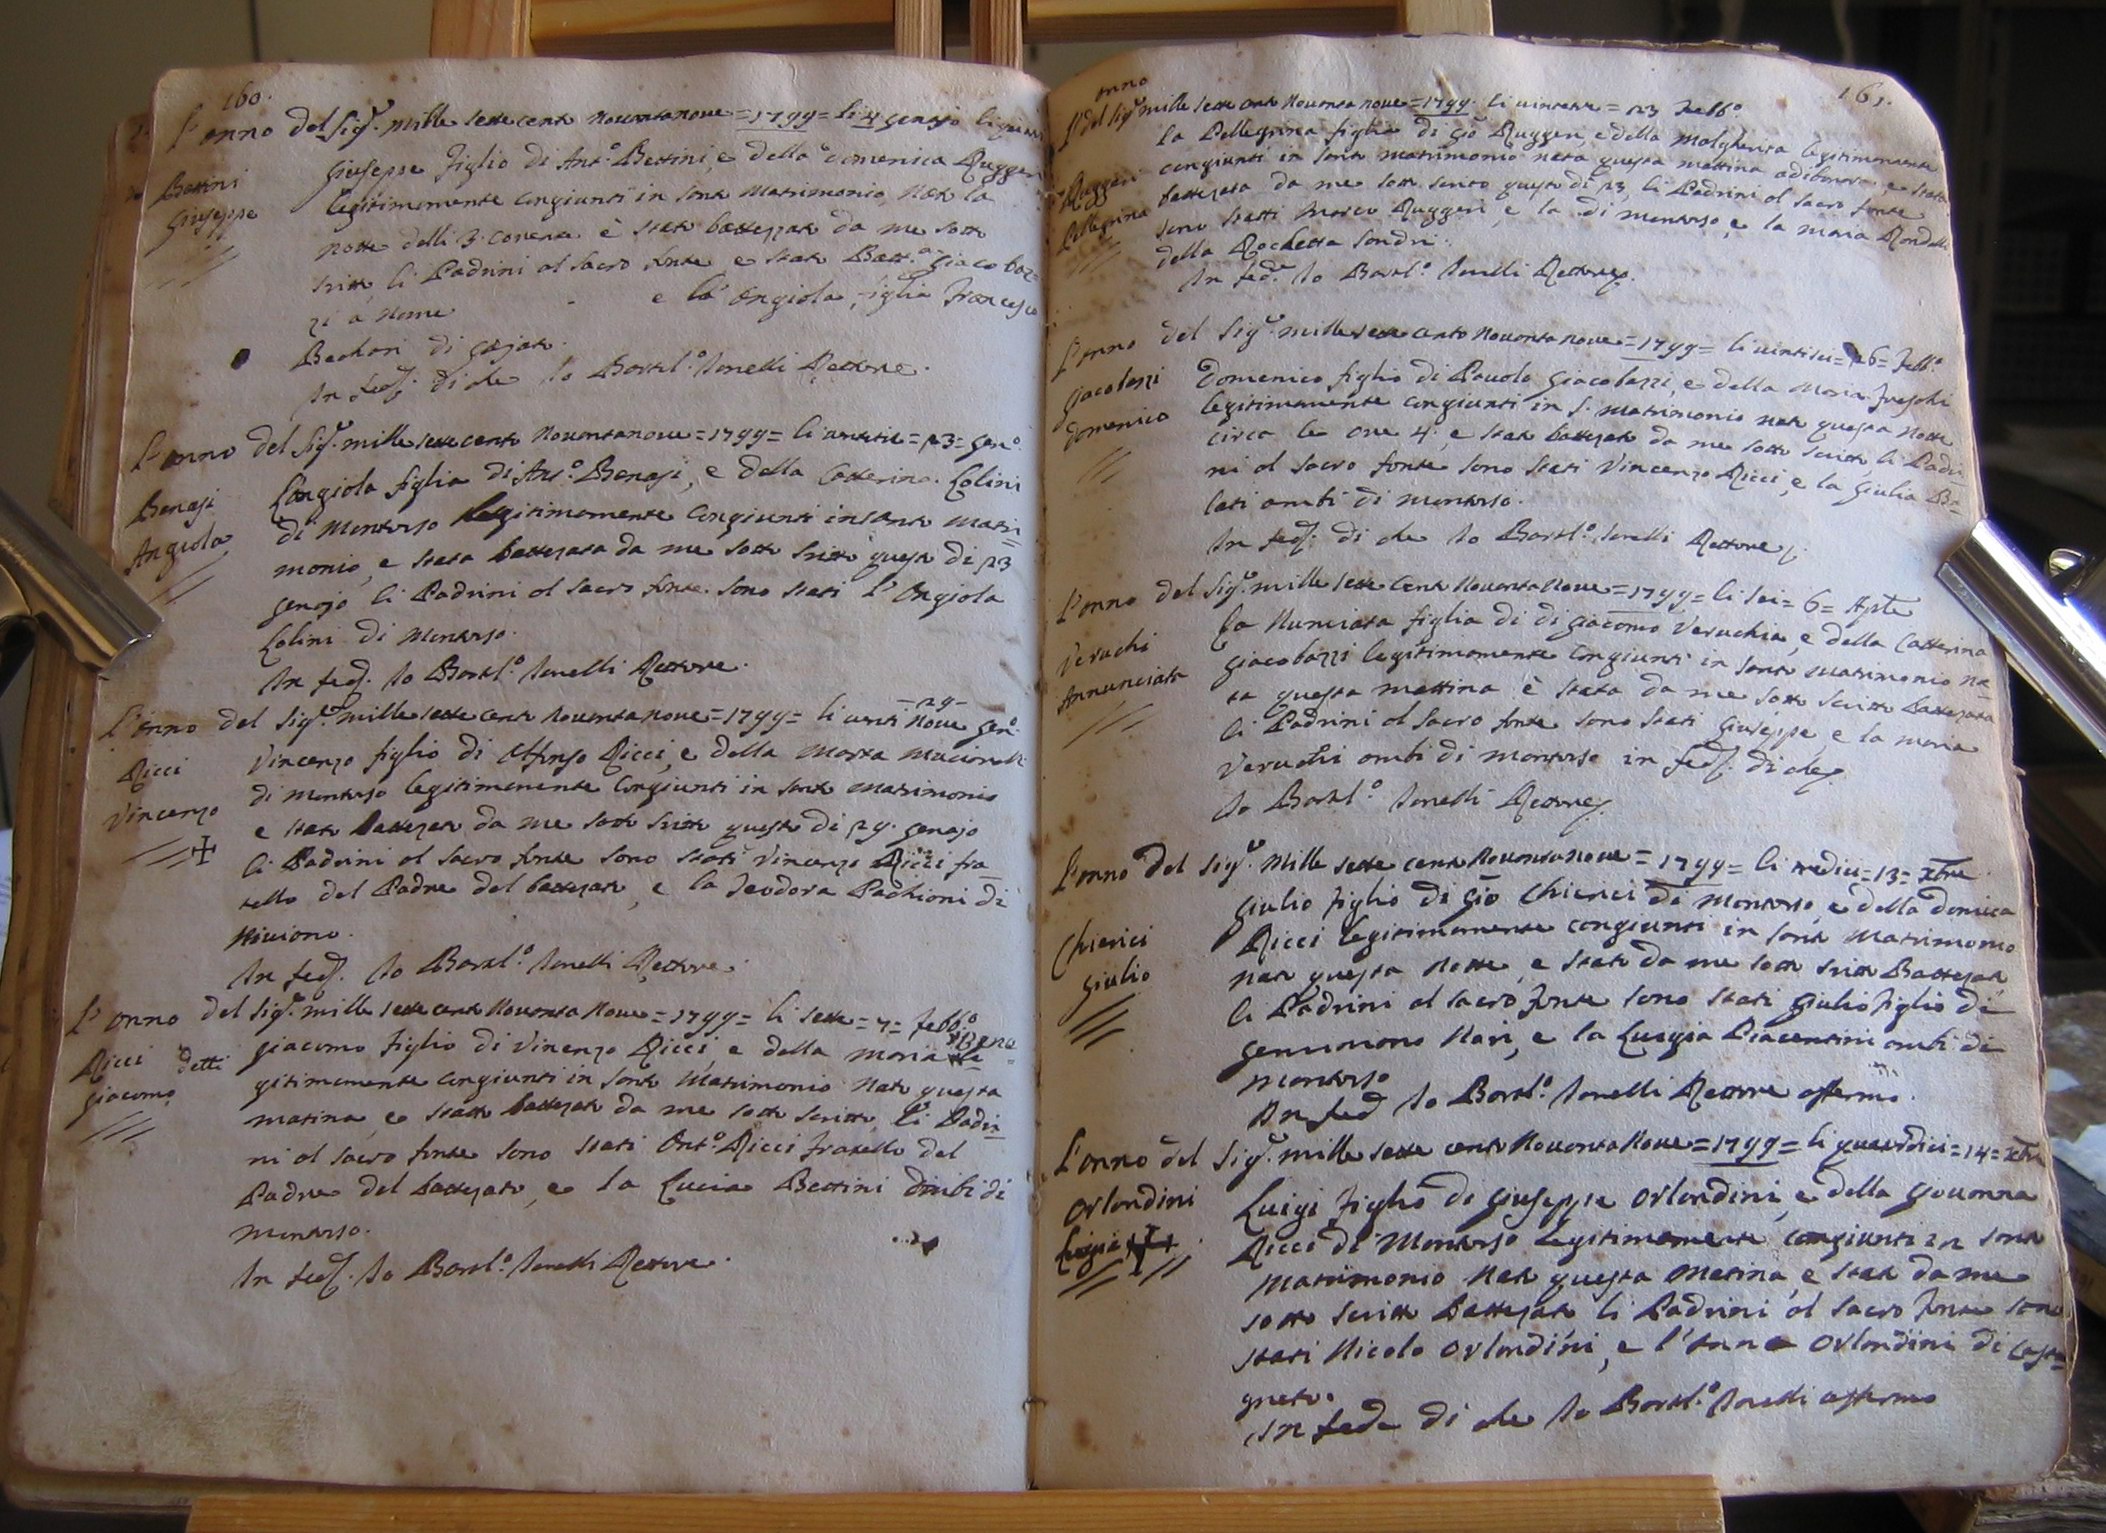 160.
L'anno del Sig.r mille sette cento Novantanove =1799= li 4 genajo
Giuseppe figlio di Ant.o Bettini, e della Domenica Rugger
Bettini
Giuseppe
legitimamente congiunti in santo Matrimonio Nato la
notte delli 3. corente è stato battezzato da me sotto
scritto, li Padrini al sacro fonte e stato Batt.a Giacobaz=
zi a nome e la Angiola figlia Francesco
Bechari di
In fed. di che Io Bartol.o Tonelli Rettore.
L'anno del Sig.r mille sette cento Novantanove =1799= li ventitre =23= gen.o
Benasi
Angiola
L'Angiola figlia di Ant.o Benasi, e della Catterina Colini
di Montorso legitimamente congiunti in santo Matri=
monio, e stata battezzata da me sotto scritto questo di 23
genajo li Padrini al sacro fonte sono stati l'Angiola
Colini di Montorso.
In fed. Io Bartol.o Tonelli Rettore.
L'anno del Sig.r mille sette cento Novanta nove =1799= li venti nove =29= gen.o
Ricci
Vincenzo
Vincenzo figlio di Alfonso Ricci, e della Marta
di Montorso legitimamente congiunti in santo Matrimonio
e stato battezzato da me sotto scritto questo di 29. genajo
li Padrini al sacro fonte sono stati Vincenzo Ricci fra=
tello del Padre del battezzato, e la Teodora Pachioni di
Niviano.
In fed. Io Bartol.o Tonelli Rettore.
L'anno del Sig.r mille sette cento Novanta Nove =1799= li sette =7= Febb.o
Ricci detti
Giacomo
Giacomo figlio di Vincenzo Ricci, e della Maria Bene le=
gitimamente congiunti in santo Matrimonio Nato questa
matina, e stato battezzato da me sotto scritto, li Padri=
ni al sacro fonte sono stati Ant.o Ricci fratello del
Padre del battezzato, e la Lucia Bettini ambi di
Montorso.
In fed. Io Bartol.o Tonelli Rettore.
161.
anno
L' del Sig.r mille sette cento Novanta nove =1799= li ventitre = 23 Febb.o
La Pellegrina figlia di Gio Ruggeri, e della Malgherita legitimamente
Ruggeri
Pellegrina
congiunti in santo matrimonio nata questa mattina e stata
battezzata da me sotto scrito questo di 23, li Padrini al sacro fonte
sono statti Marco Ruggeri, e la di Montorso, e la Maria Rondelli
della Rochetta Sandri.
In fed.e Io Bartol.o Tonelli Rettore.
L'anno del Sig.r mille sette cento Novanta nove =1799= li ventisei =26= Febb.o
Giacobazzi
Domenico
Domenico figlio di Pauolo Giacobazzi, e della Maria
legitimamente congiunti in S. Matrimonio nato questa Notte
circa le ore 4. e stato battezzato da me sotto scritto, li Padri=
ni al sacro fonte sono stati Vincenzo Ricci, e la Giulia Be=
lati ambi di Montorso.
In fed. di che Io Bartol.o Tonelli Rettore.
L'anno del Sig.r mille sette cento Novanta Nove =1799= li sei =6= Aple
Veruchi
Annunciata
La Nunciata figlia di di Giacomo Veruchia, e della Catterina
Giacobazzi legitimamente congiunti in santo Matrimonio na=
ta questa mattina è stata da me sotto scritto battezzata
li Padrini al sacro fonte sono stati Giuseppe, e la Maria
Veruchi ambi di Montorso in fed. di che.
Io Bartol.o Tonelli Rettore.
L'anno del Sig.r Mille sette cento Novantanove =1799= li tredici =13= Xbre
Chierici
Giulio
Giulio figlio di Gio Chierici di Montorso, e della Domenica
Ricci legitimamente congiunti in santo Matrimonio
nato questa Notte, e stato da me sotto scritto Battezzato
li Padrini al sacro fonte sono stati Giulio figlio di
Geminiano Nari, e la Luigia Piacentini ambi di
Montorso
In fed Io Bartol.o Tonelli Rettore affermo.
L'anno del Sig.r mille sette cento Novanta Nove =1799= li quatordici =14= Xbre
Orlandini
Luigi
Luigi figlio di Giuseppe Orlandini, e della Giovanna
Ricci di Montorso legitimamente congiunti in santo
Matrimonio Nato questa Matina, e stato da me
sotto scritto Battezzato li Padrini al sacro Fonte sono
stati Nicolo Orlandini, e l'Anna Orlandini di Casta=
gneto.
In fede di che Io Bartol.o Tonelli affermo